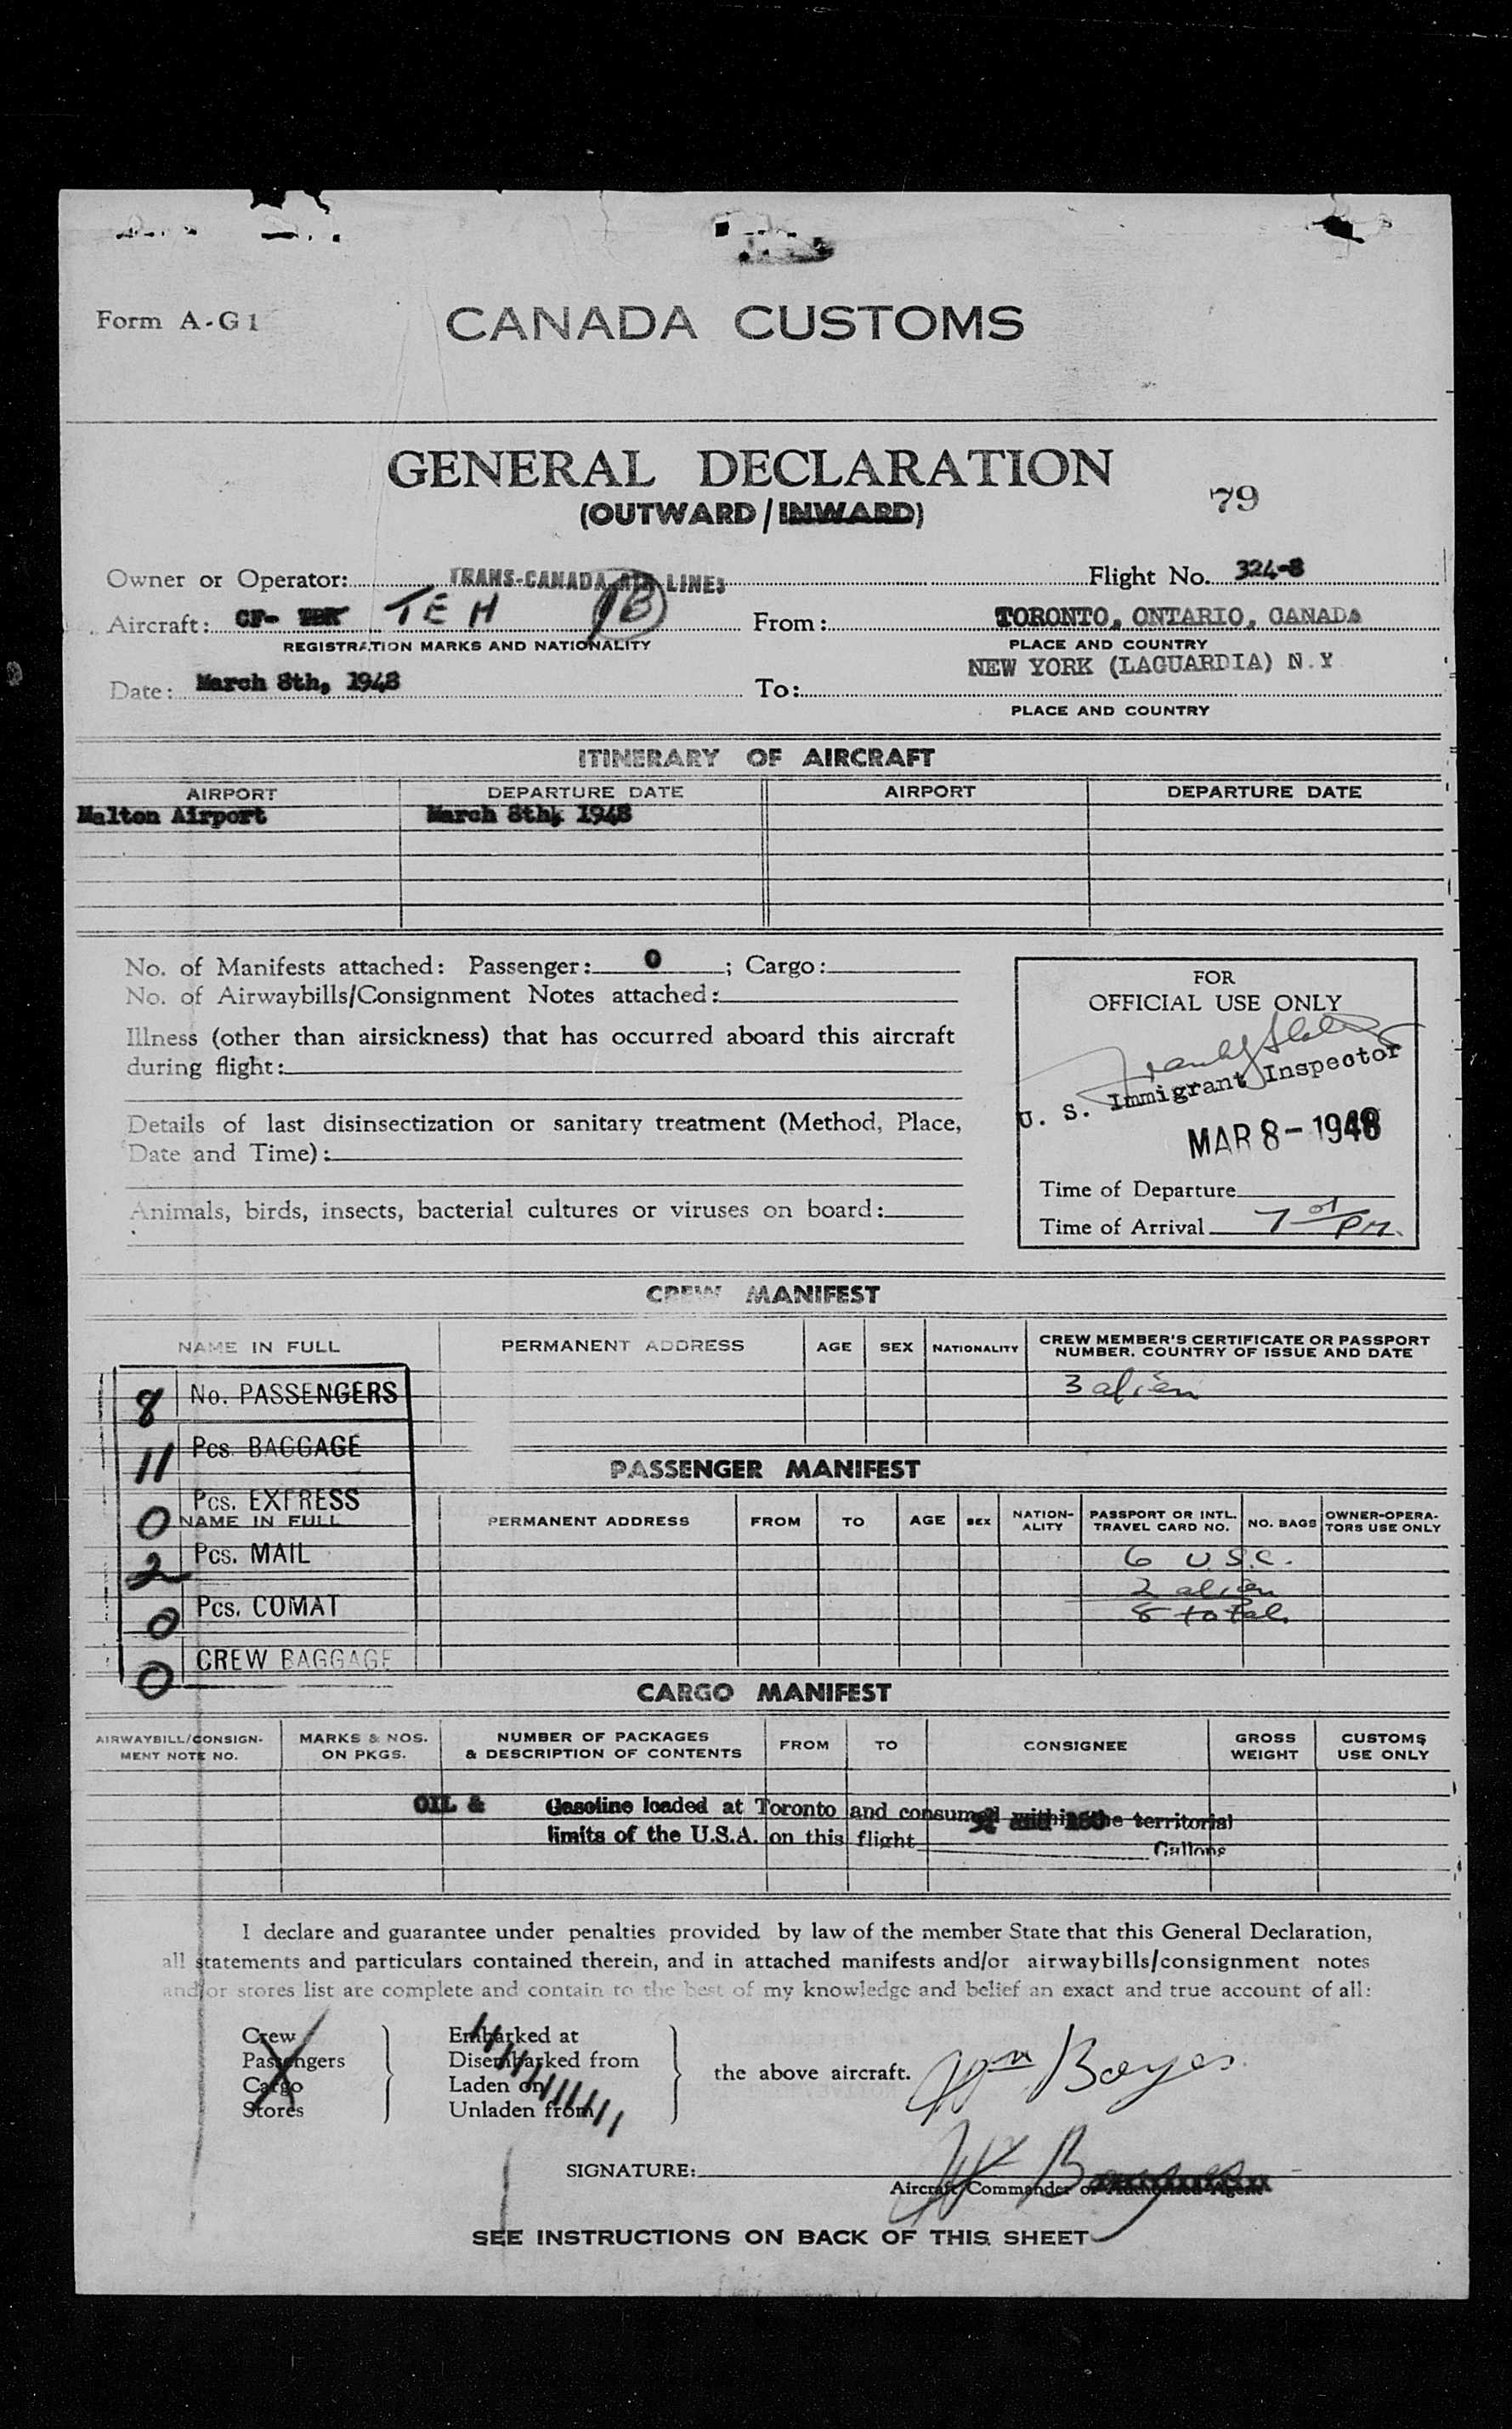 Form A-G1
CANADA CUSTOMS
GENERAL DECLARATION
(OUTWARD/INWARD)
79
Owner or Operator: TRANS-CANADA AIR LINES
Flight No. 324-8
Aircraft: CF- TEH
From: TORONTO, ONTARIO, CANADA
REGISTRATION MARKS AND NATIONALITY
PLACE AND COUNTRY
Date: March 8th, 1948
To: NEW YORK (LAGUARDIA) N.Y
PLACE AND COUNTRY
ITINERARY OF AIRCRAFT
AIRPORT DEPARTURE DATE AIRPORT DEPARTURE DATE
Malton Airport March 8th, 1948
No. of Manifests attached: Passenger: 0 ; Cargo:
No. of Airwaybills/Consignment Notes attached:
Illness (other than airsickness) that has occurred aboard this aircraft
during flight:
Details of last disinsectization or sanitary treatment (Method, Place,
Date and Time):
Animals, birds, insects, bacterial cultures or viruses on board:
FOR
OFFICIAL USE ONLY
U. S. Immigrant Inspector
MAR 8-1948
Time of Departure
Time of Arrival 7 01 PM.
CREW MANIFEST
NAME IN FULL PERMANENT ADDRESS AGE SEX NATIONALITY CREW MEMBER'S CERTIFICATE OR PASSPORT
NUMBER, COUNTRY OF ISSUE AND DATE
3 alien
8 No. PASSENGERS
11 Pcs. BAGGAGE
0 Pcs. EXPRESS
2 Pcs. MAIL
0 Pcs. COMAT
0 CREW BAGGAGE
PASSENGER MANIFEST
NAME IN FULL PERMANENT ADDRESS FROM TO AGE SEX NATION-
ALITY PASSPORT OR INTL.
TRAVEL CARD NO. NO. BAGS OWNER-OPERA-
TORS USE ONLY
6 U.S.C.
2 alien
8 total.
CARGO MANIFEST
AIRWAYBILL/CONSIGN-
MENT NOTE NO. MARKS & NOS.
ON PKGS. NUMBER OF PACKAGES
& DESCRIPTION OF CONTENTS FROM TO CONSIGNEE GROSS
WEIGHT CUSTOMS
USE ONLY
OIL & Gasoline loaded at Toronto and consumed within the territorial
limits of the U.S.A. on this flight Gallons
I declare and guarantee under penalties provided by law of the member State that this General Declaration,
all statements and particulars contained therein, and in attached manifests and/or airwaybills/consignment notes
and/or stores list are complete and contain to the best of my knowledge and belief an exact and true account of all:
Crew
Passengers
Cargo
Stores
Embarked at
Disembarked from
Laden on
Unladen from
the above aircraft.
SIGNATURE:
Aircraft Commander or Authorized Agent
SEE INSTRUCTIONS ON BACK OF THIS SHEET